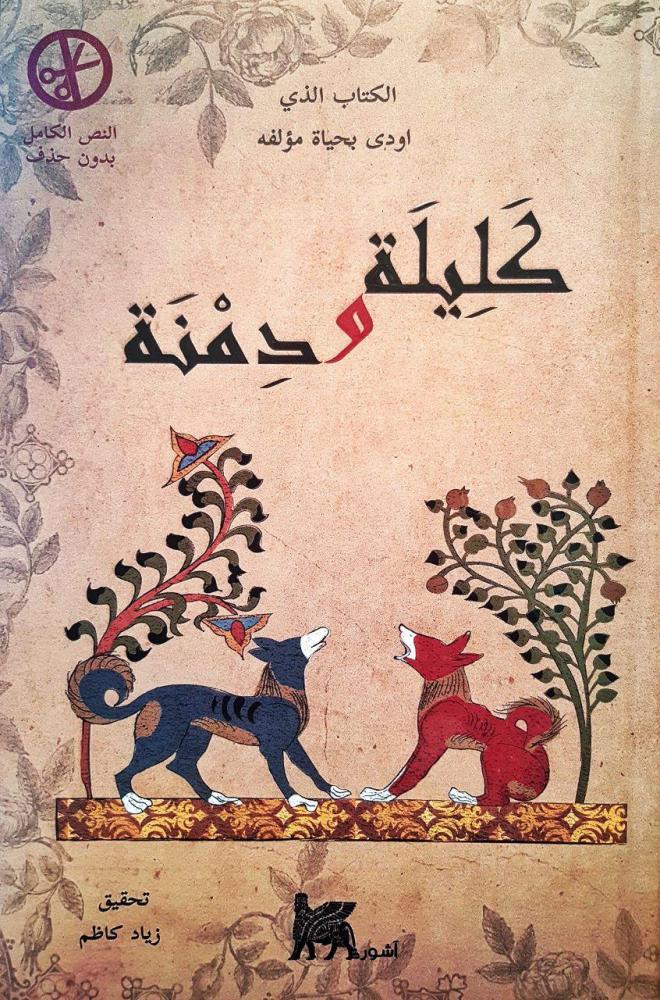 الكتاب الذي
اودى بحياة مؤلفه
النص الكامل
بدون حذف
كَلِيلَة
و
دِمْنَة
تحقيق
زياد كاظم
آشور